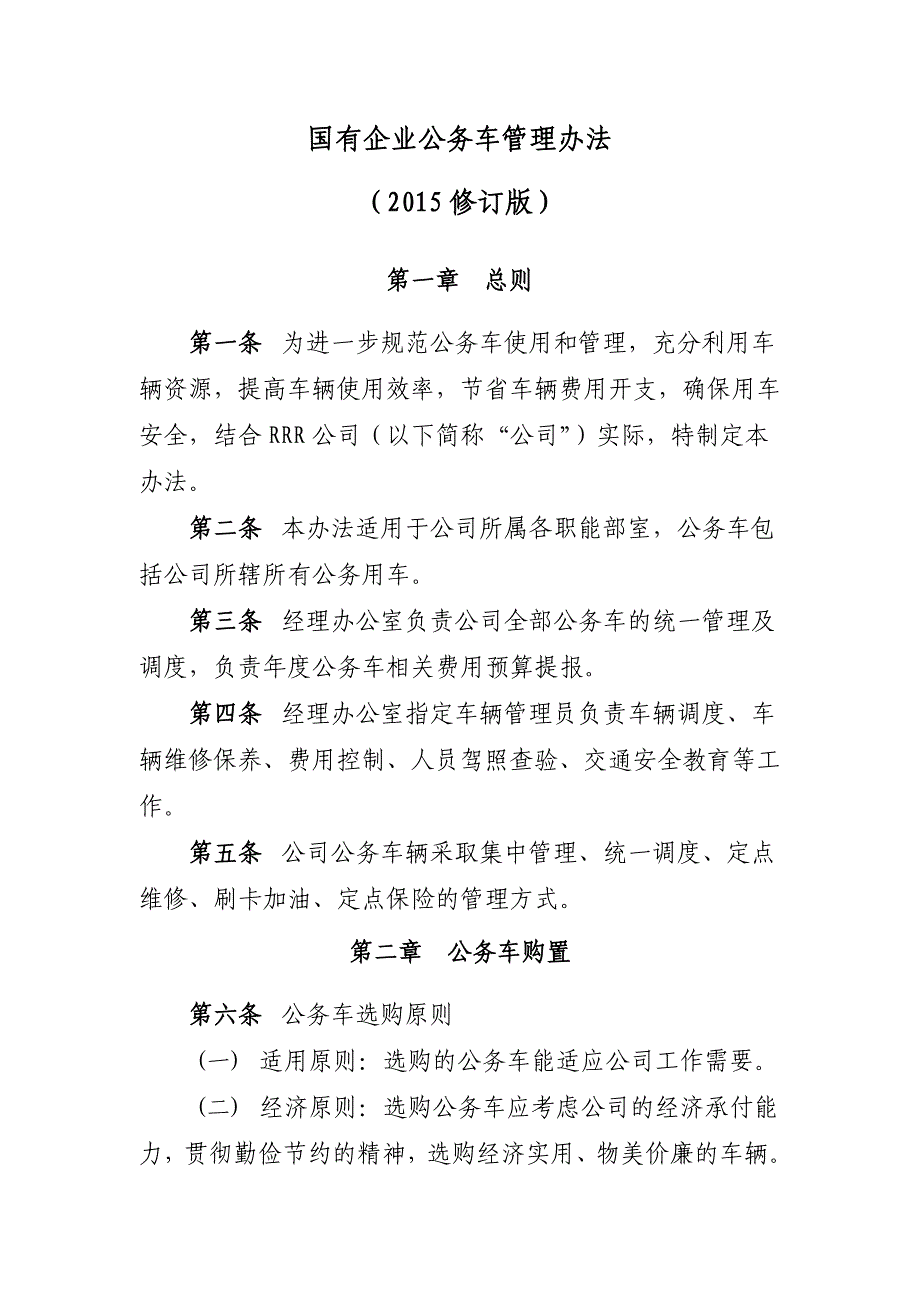 国有企业公务车管理办法
（2015 修订版）
第一章 总则
第一条 为进一步规范公务车使用和管理，充分利用车
辆资源，提高车辆使用效率，节省车辆费用开支，确保用车
安全，结合 RRR 公司（以下简称“公司”）实际，特制定本
办法。
第二条 本办法适用于公司所属各职能部室，公务车包
括公司所辖所有公务用车。
第三条 经理办公室负责公司全部公务车的统一管理及
调度，负责年度公务车相关费用预算提报。
第四条 经理办公室指定车辆管理员负责车辆调度、车
辆维修保养、费用控制、人员驾照查验、交通安全教育等工
作。
第五条 公司公务车辆采取集中管理、统一调度、定点
维修、刷卡加油、定点保险的管理方式。
第二章 公务车购置
第六条 公务车选购原则
(一) 适用原则：选购的公务车能适应公司工作需要。
(二) 经济原则：选购公务车应考虑公司的经济承付能
力，贯彻勤俭节约的精神，选购经济实用、物美价廉的车辆。